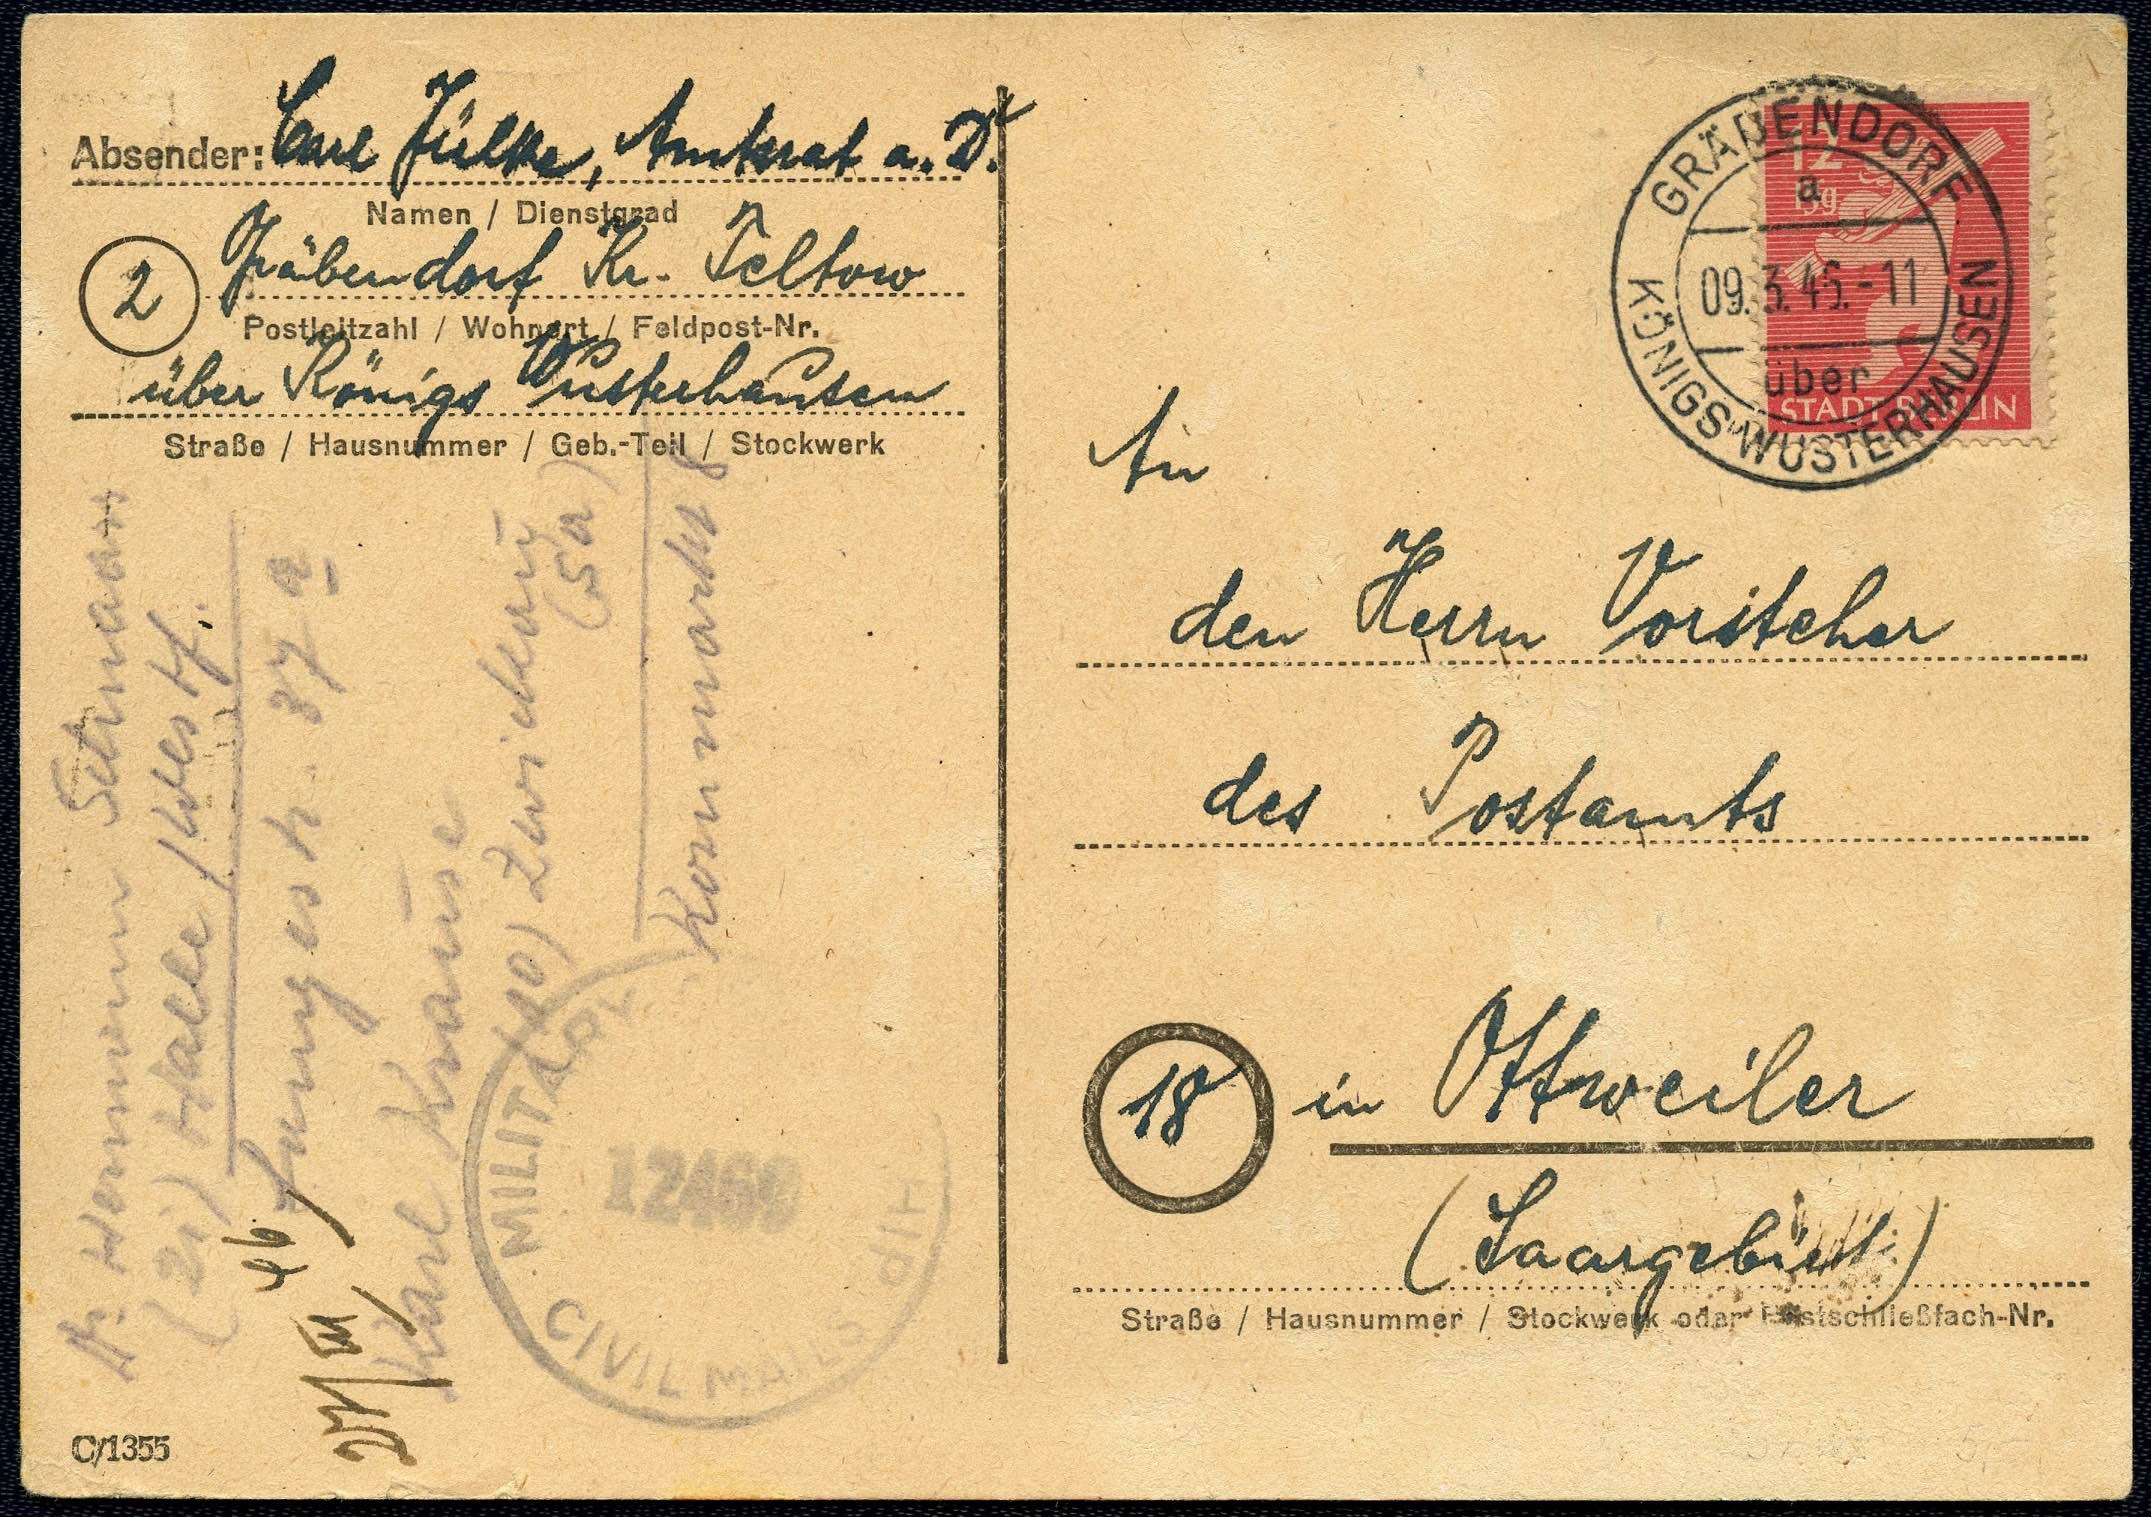 Absender: Carl Jülke, Amtsrat a. D.
Namen / Dienstgrad
2 Gräbendorf Kr. Teltow
Postleitzahl / Wohnort / Feldpost-Nr.
über Königs Wusterhausen
Straße / Hausnummer / Geb.-Teil / Stockwerk
12
Pfg
STADT BERLIN
GRÄBENDORF
a
09.3.46.-11
über
KÖNIGS WUSTERHAUSEN
An
den Herrn Vorsteher
des Postamts
18 in Ottweiler
(Saargebiet)
Straße / Hausnummer / Stockwerk oder Postschließfach-Nr.
Hermann
(21) Halle /Westf.
87 a
Karl Krause
(10) Zwickau
(5a)
Kornmarkt 8
27/III 46
MILITARY
12460
CIVIL MAILS
C/1355